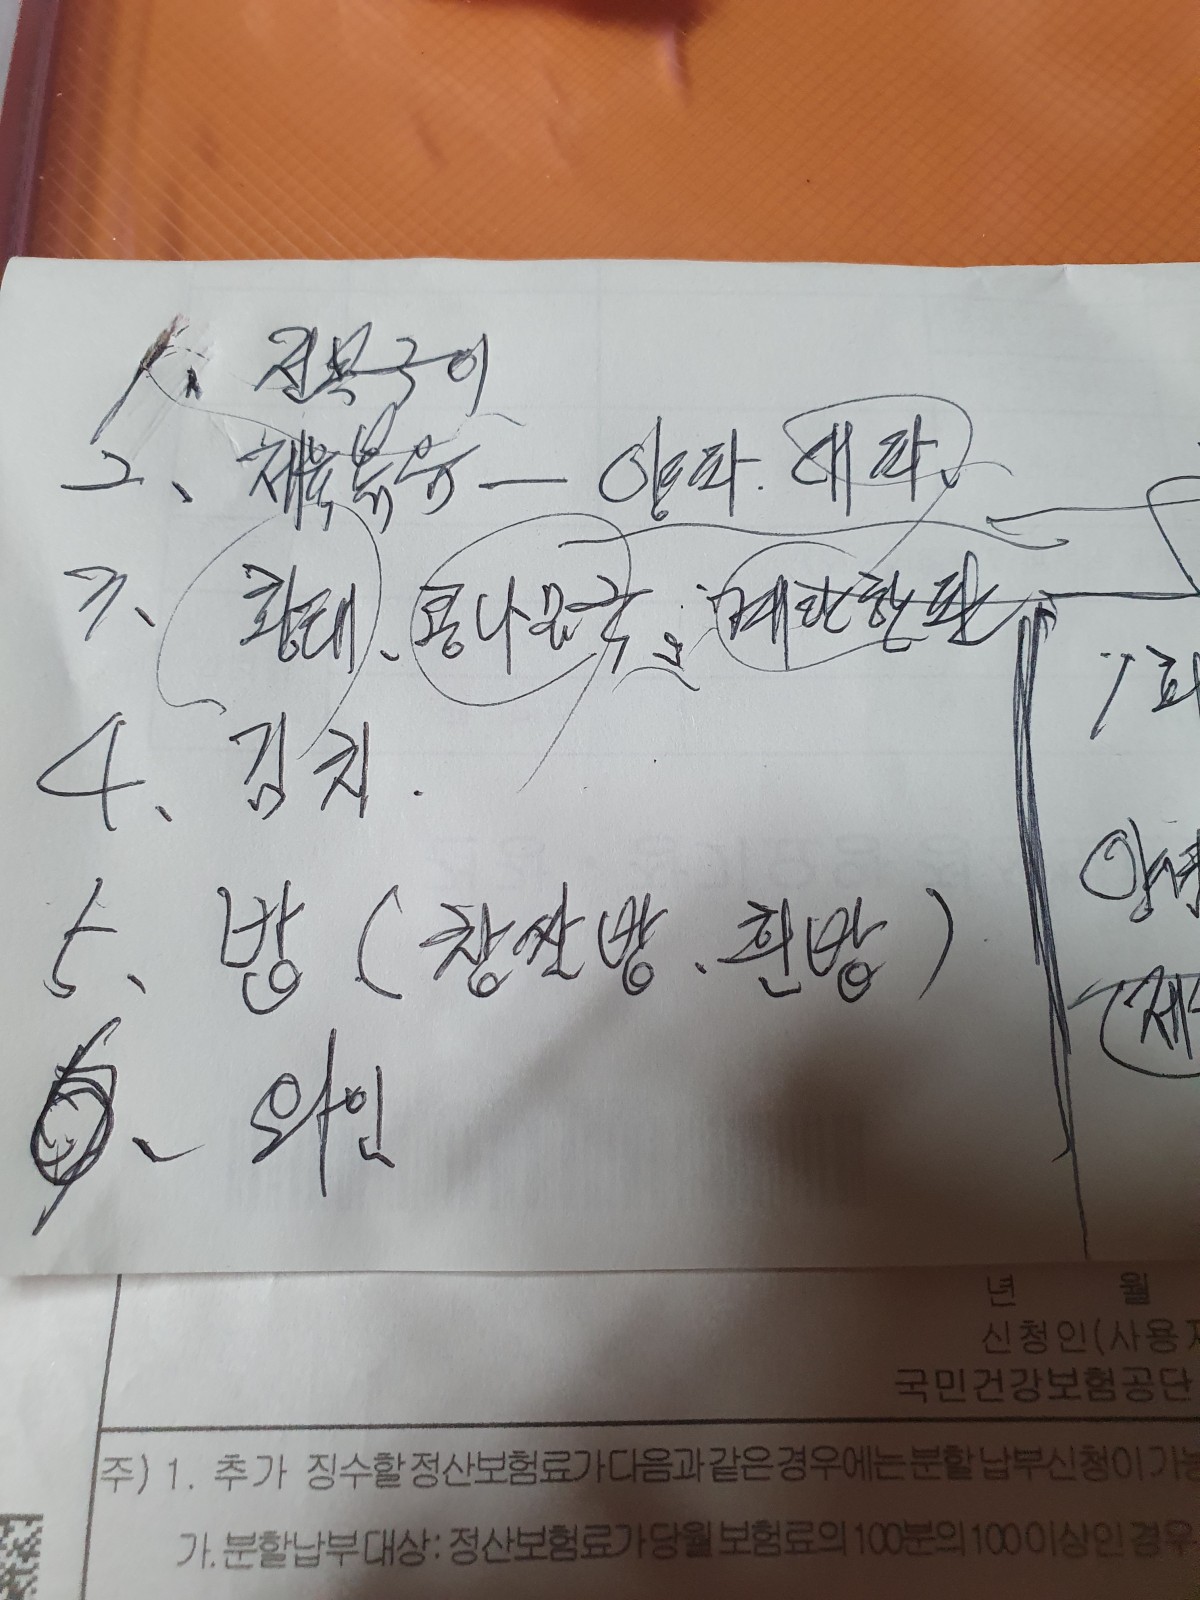 1. 전복구이
2. 제육볶음 - 양파. 대파.
3. 황태. 콩나물국. 계란한판
1회
4. 김치.
5. 빵 (찹쌀빵. 흰빵)
와인
년 월
신청인(사용자
국민건강보험공단
주) 1. 추가 징수할 정산보험료가 다음과 같은 경우에는 분할 납부신청이 가능
가. 분할납부 대상: 정산보험료가 당월 보험료의 100분의 100 이상인 경우